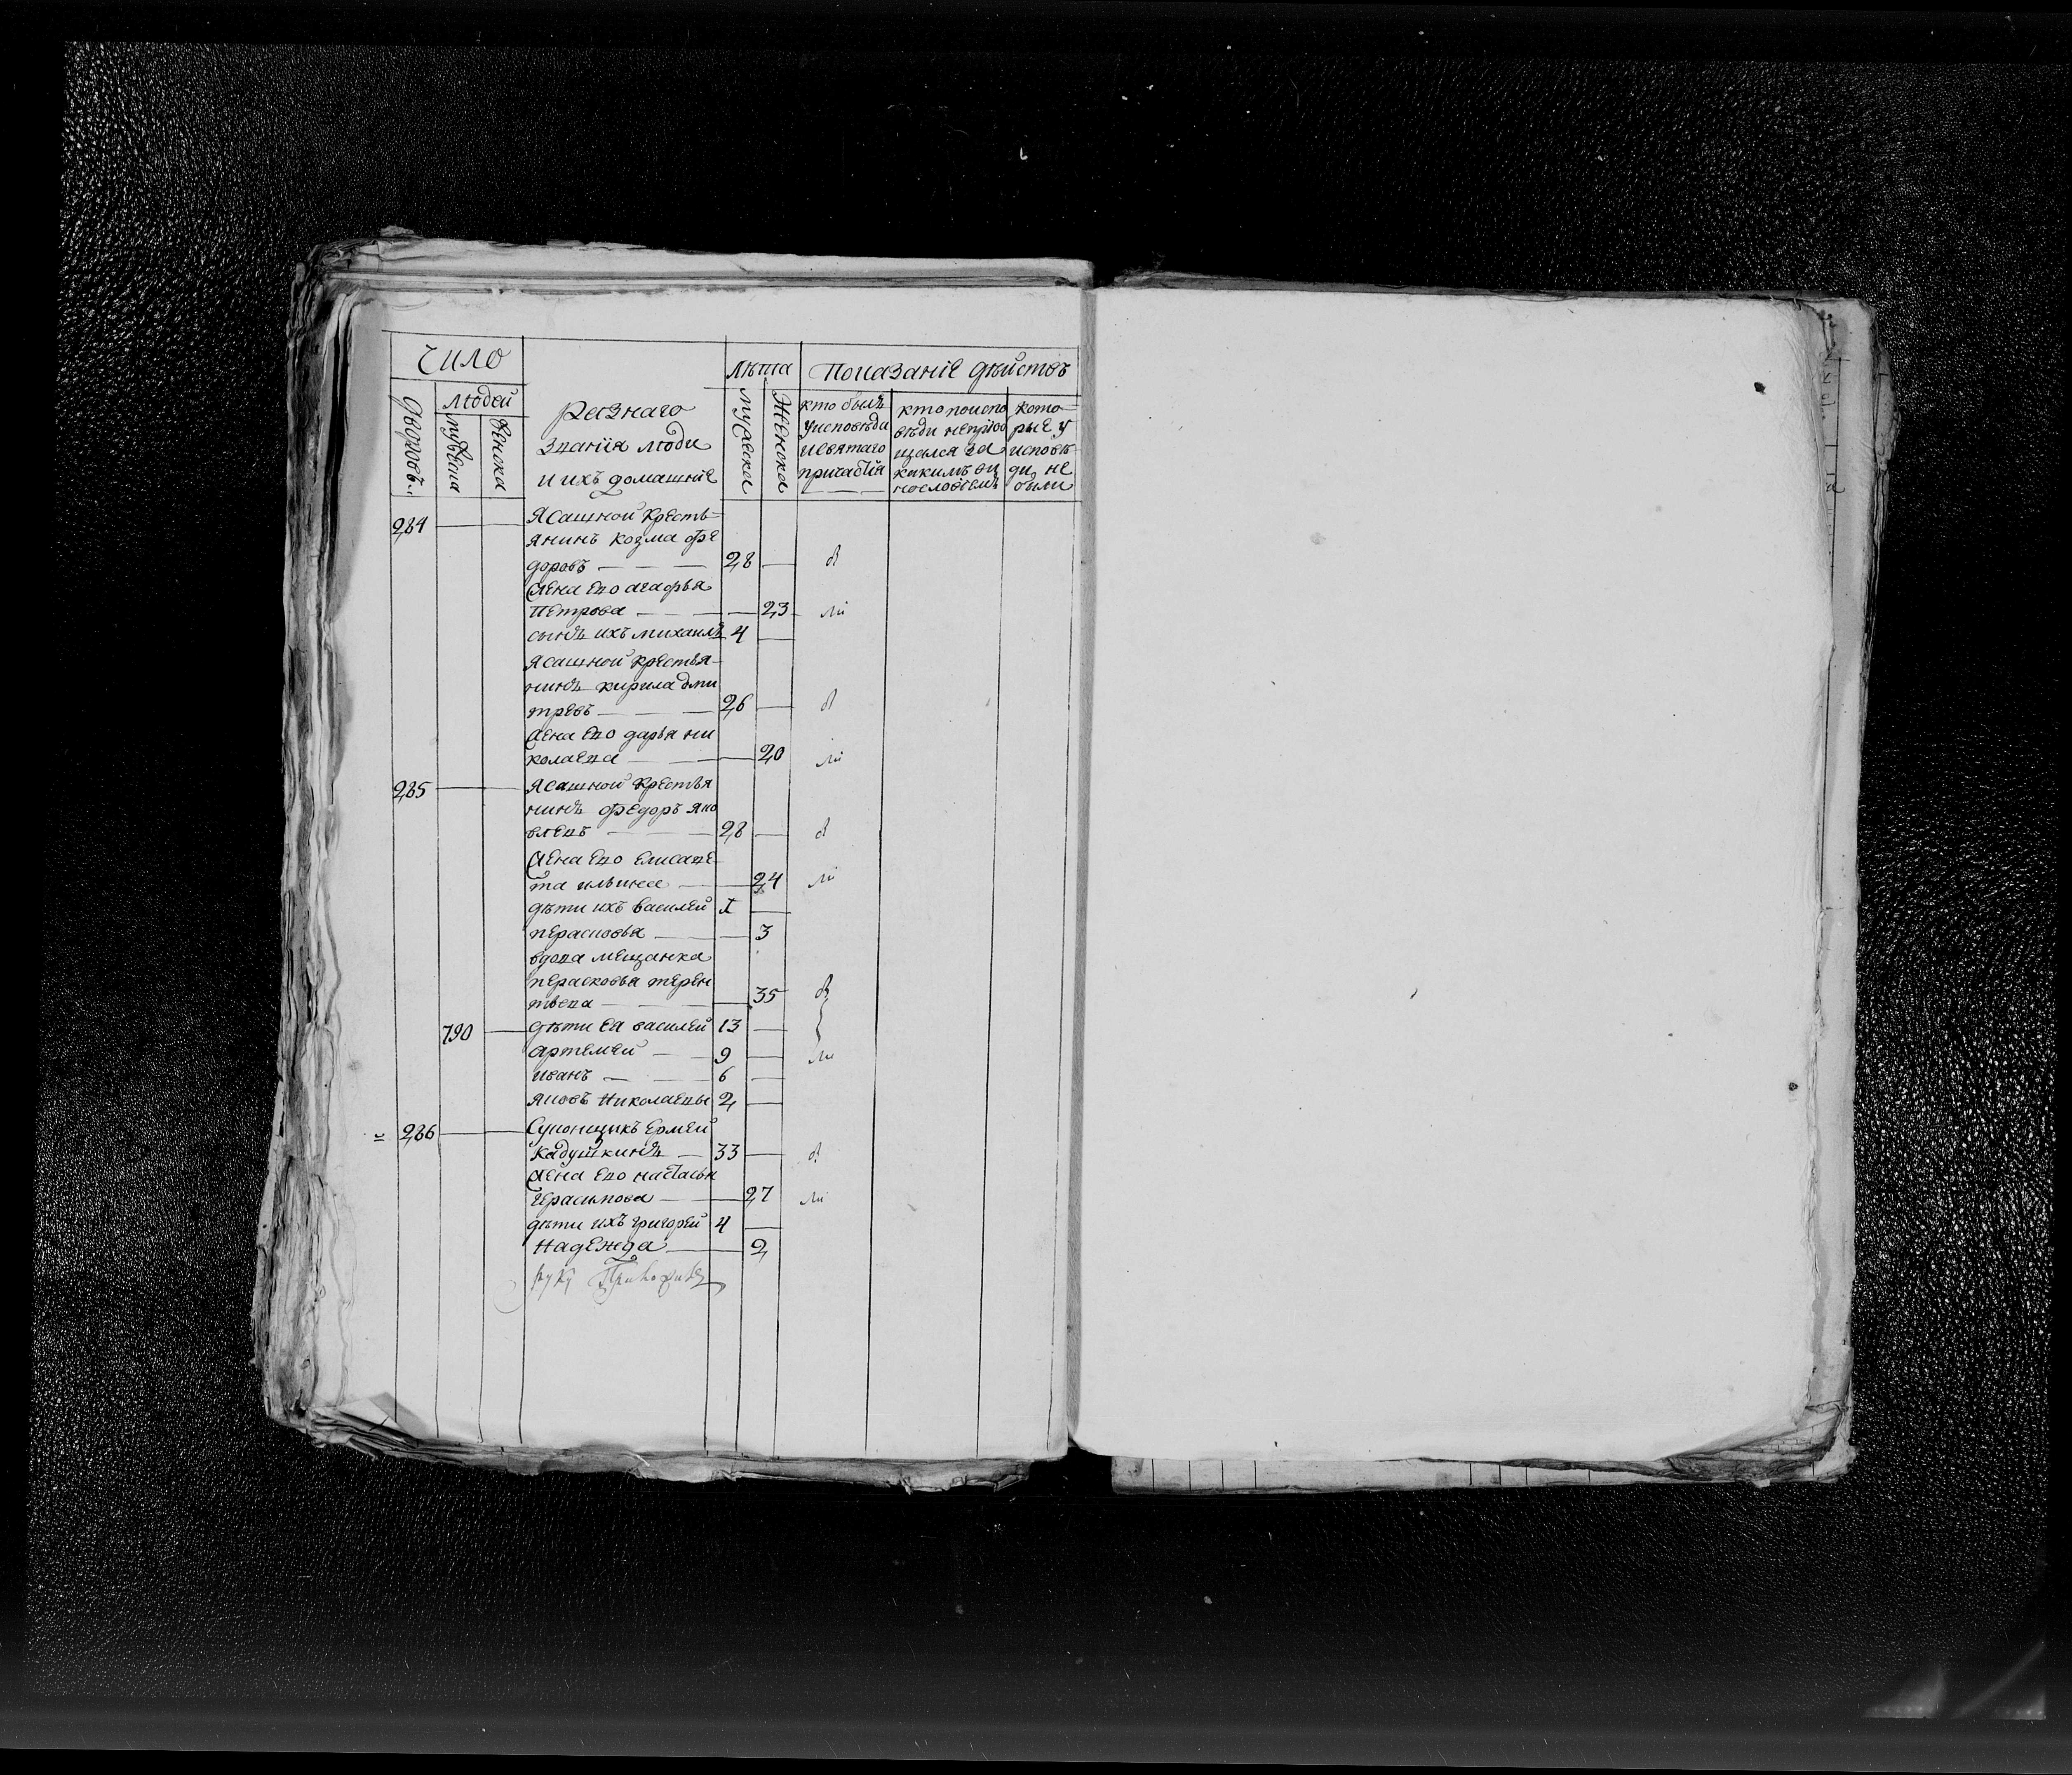 Число
Лѣта
Показанїе дѣйствъ
Дворовъ
людей
мужеска
женска
Разнаго
званїя люди
и ихъ домашнїе
мужеска
женска
кто былъ
у исповѣди
и святаго
причастїя
кто по испо
вѣди не прїоб
щался за
какимъ ви
нословїемъ
кото-
рые у
исповѣ
ди не
были
284 Ясашной кресть-
янинъ козма Фе
доровъ 28 б
Жена ево агафья
Петрова 23 ли
сынъ ихъ михаилъ 4
Ясашной крестья-
нинъ кирила дми
тревъ 26 б
Жена ево дарья ни
колаева 20 ли
285 Ясашной крестья
нинъ Федоръ яко
влевъ 28 б
Жена ево елисаве
та ильина 24 ли
дѣти ихъ василей 1
перасковья 3
вдова мещанка
перасковья терен
тьева 35 б
790 дѣти ея василей 13
артемей 9 ли
иванъ 6
яковъ Николаевы 2
286 Суконщикъ ермей
кадушкинъ 33 б
Жена ево настасья
герасимова 27 ли
дѣти ихъ григорей 4
Надежда 2